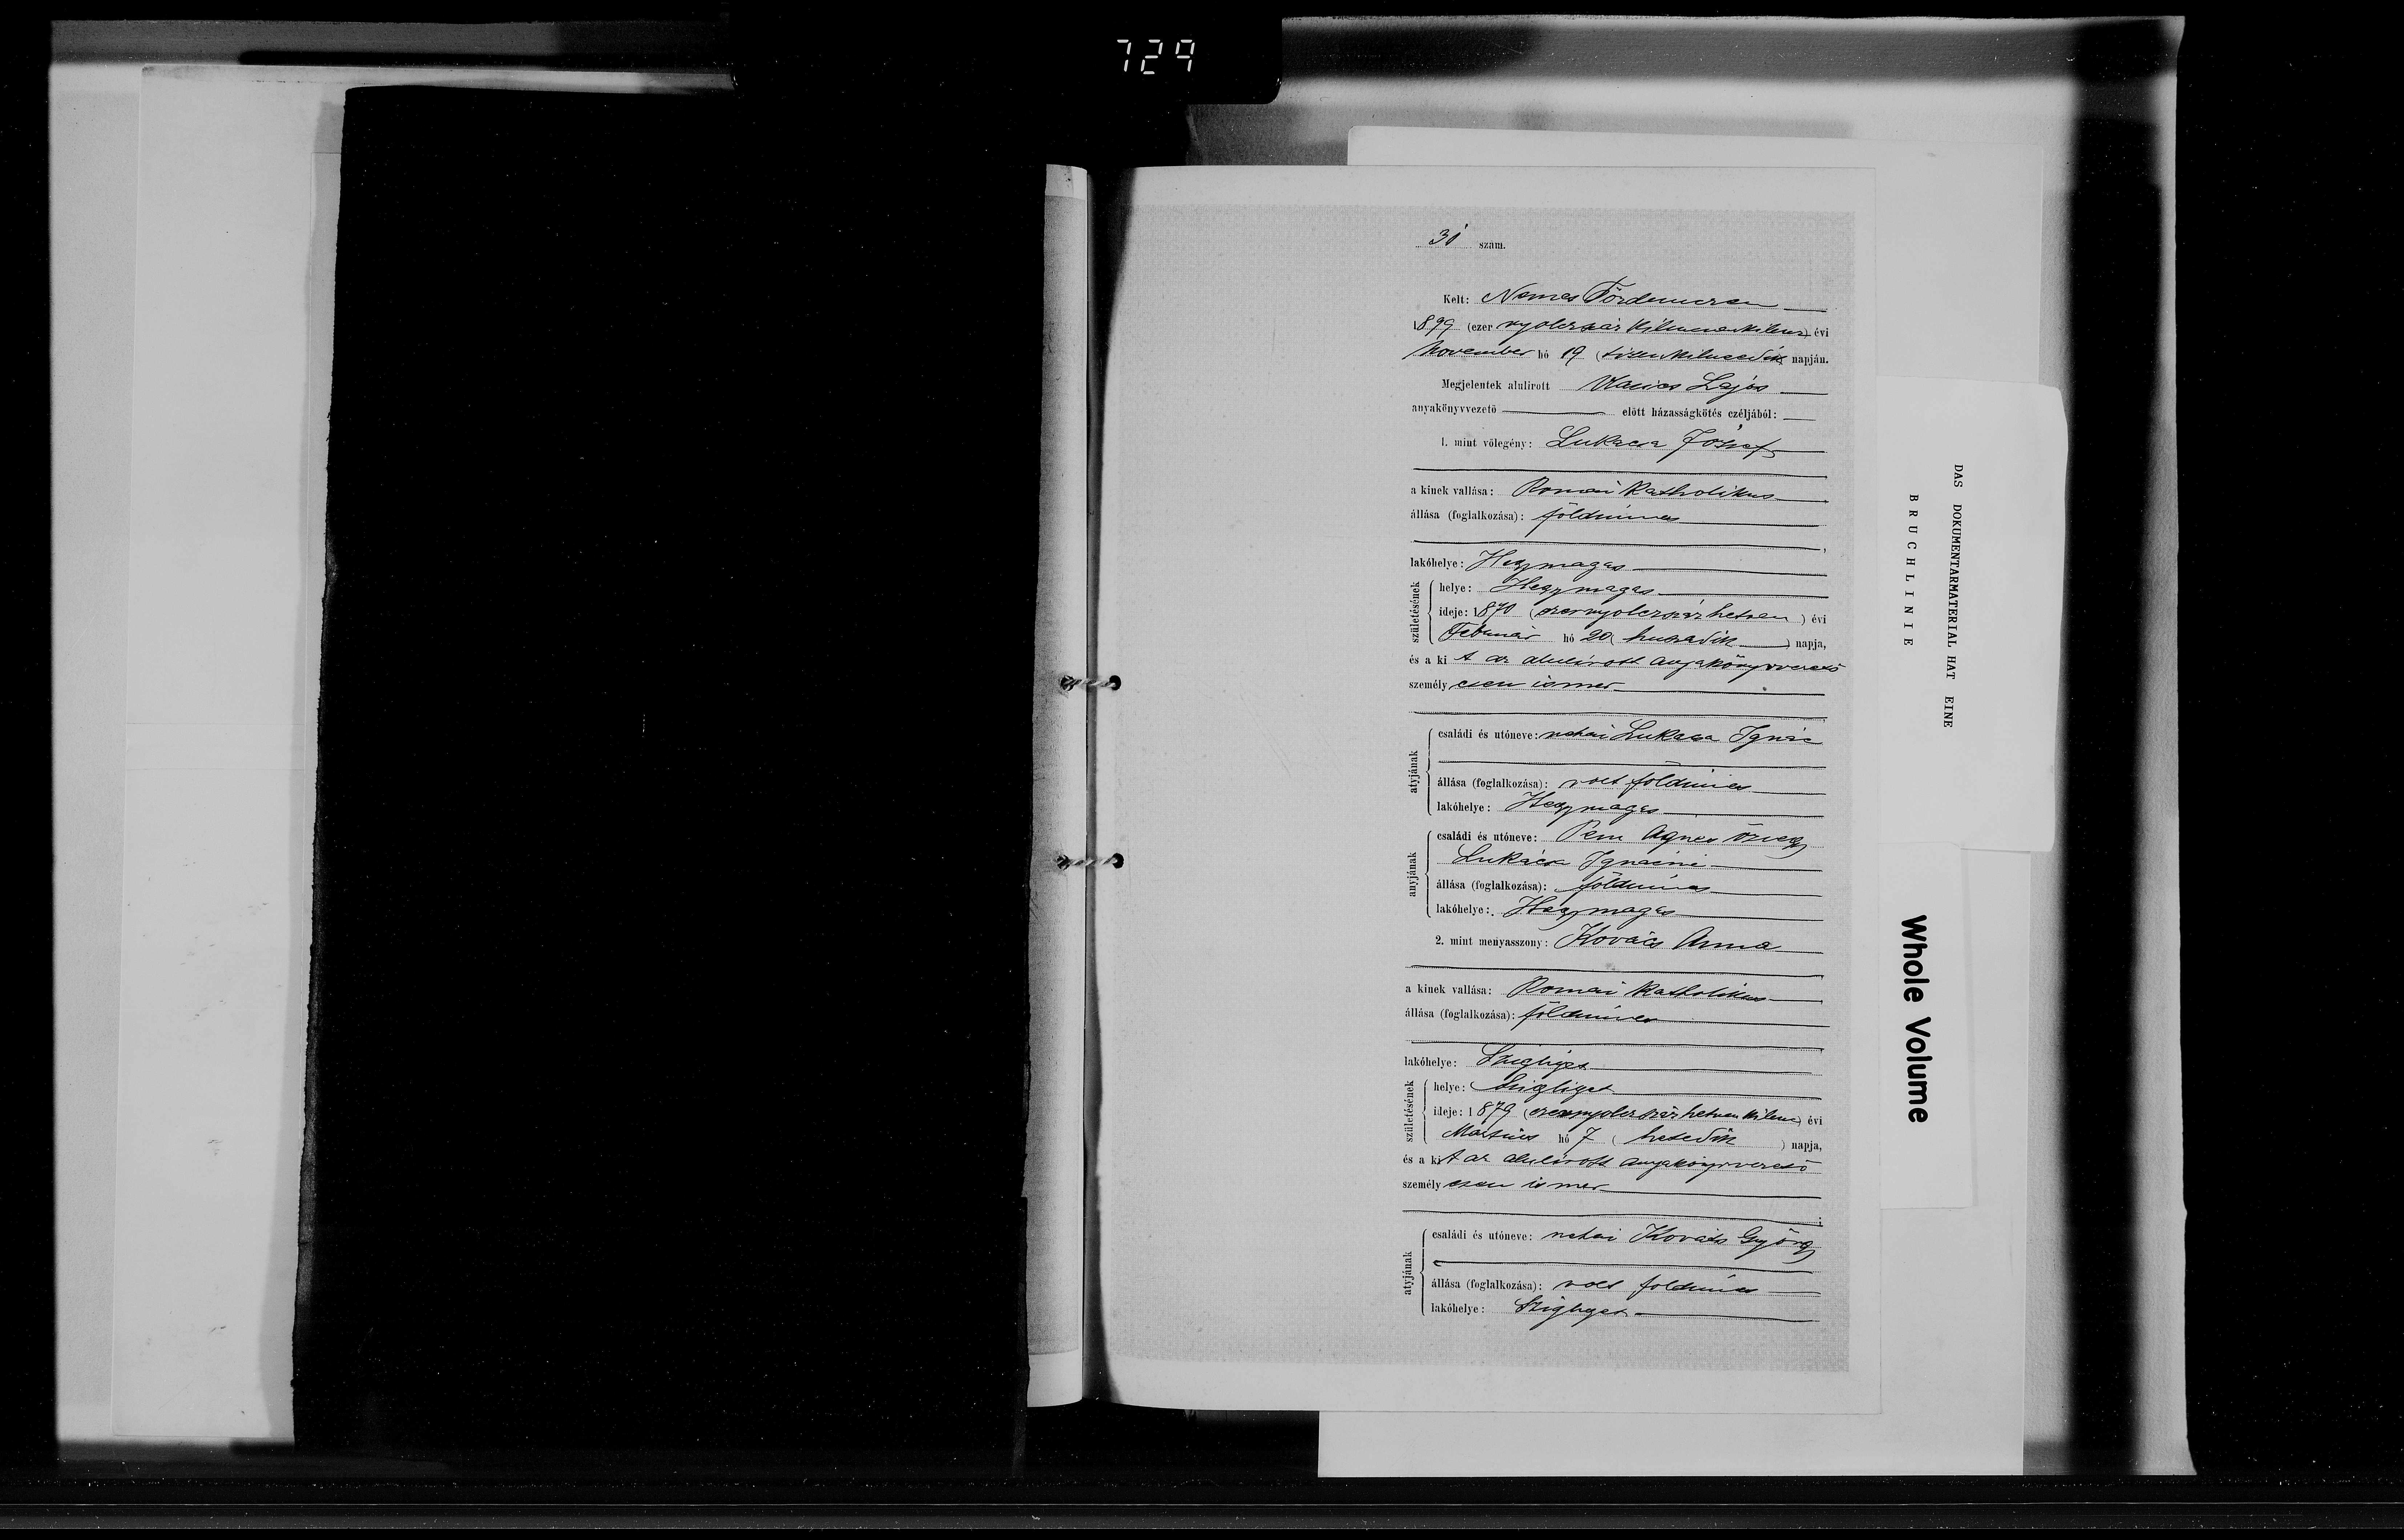 729
31 szám.
Kelt: Nemes Tördemicen
1899 (ezer nyolczszáz kilenczvenkilencz) évi
November hó 19 (tizenkilenczedik) napján.
Megjelentek alulirott Lajos
anyakönyvvezető előtt házasságkötés czéljából:
1. mint vőlegény: Lukacsa József
a kinek vallása: Romai Katholikus
állása (foglalkozása): földmíves
lakóhelye: Hegymagas
születésének
helye: Hegymagas
ideje: 1870 (ezernyolczszázhetven) évi
Február hó 20 (huszadik) napja,
és a ki t az alulírott anyakönyvvezető
személy esen ismer
atyjának
családi és utóneve: nehai Lukacsa Ignác
állása (foglalkozása): volt földmíves
lakóhelye: Hegymagas
anyjának
családi és utóneve: Pem Agnes özvegy
Lukácsa Ignácné
állása (foglalkozása): földmíves
lakóhelye: Hegymagas
2. mint menyasszony: Kovács Anna
a kinek vallása: Romai Katholikus
állása (foglalkozása): földmíves
lakóhelye: Szigliget
születésének
helye: Szigliget
ideje: 1879 (ezernyolczszázhetvenkilencz) évi
Martius hó 7 (hetedik) napja,
és a ki t az alulírott anyakönyvvezető
személy esen ismer
atyjának
családi és utóneve: nehai Kovács György
állása (foglalkozása): volt földmíves
lakóhelye: Szigliget
DAS DOKUMENTARMATERIAL HAT EINE
BRUCHLINIE
Whole Volume